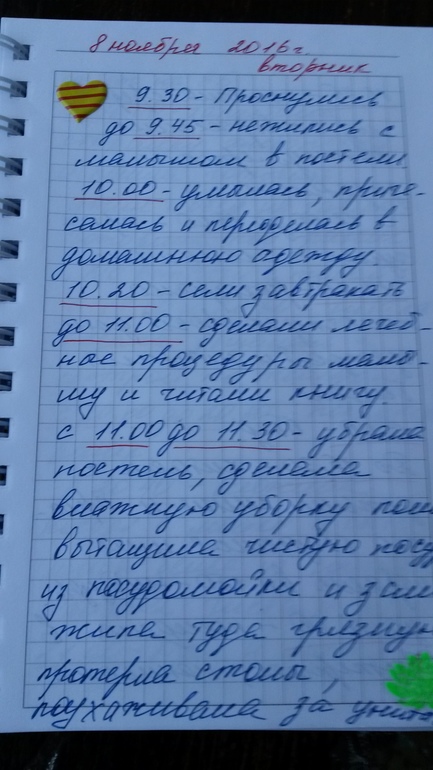 8 ноября 2016г.
вторник
9.30 - Проснулись
до 9.45 - нежились с
малышом в постели.
10.00 - умылась, приче-
салась и переоделась в
домашнюю одежду.
10.20 - сели завтракать
до 11.00 - сделали лечеб-
ные процедуры малы-
шу и читали книгу.
с 11.00 до 11.30 - убрала
постель, сделала
влажную уборку пол
вытащила чистую посу
из посудомойки и зало
жила туда грязную
протерла столы,
поухаживала за унита